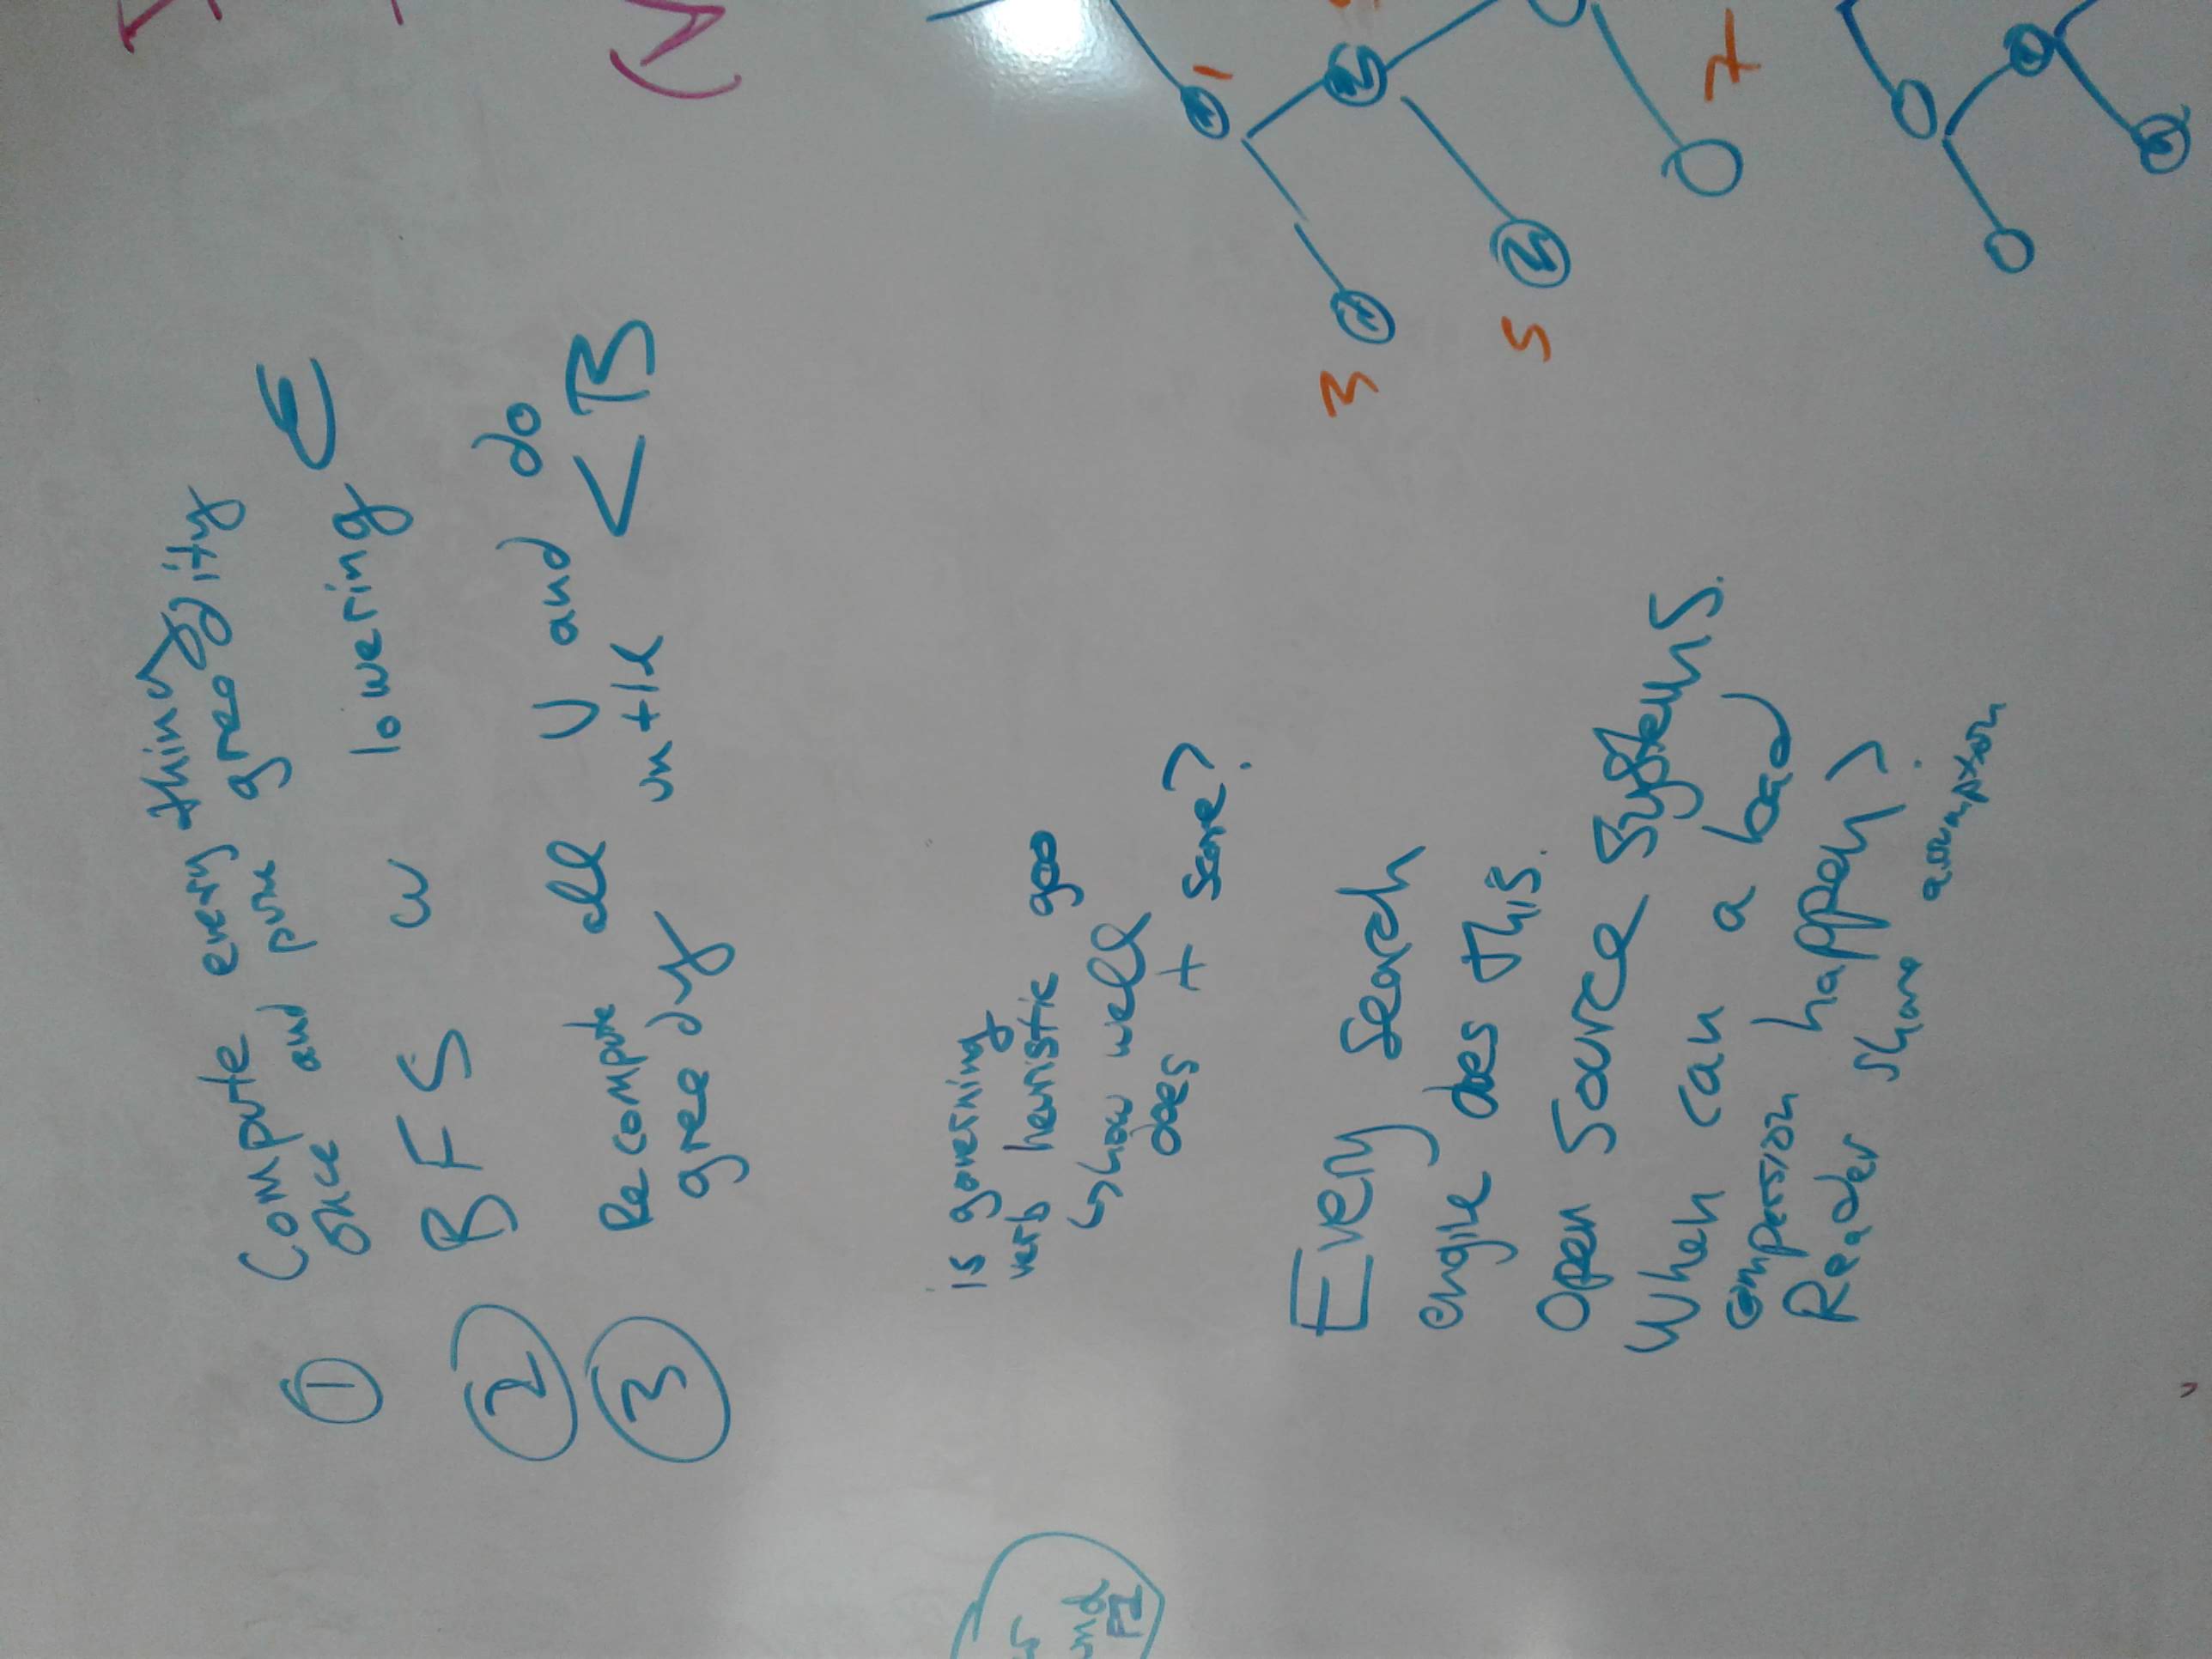 ① Compute everything
once and pure greedity
② BFS w lowering ε
③ Recompute all V and do
greedy until < B
is governing
verb heuristic goo
↳ how well
does it score?
Every search
engine does this.
Open Source Systems.
When can a bad
compersion happen?
Reader share assumption
and
F1
1
3
5
7